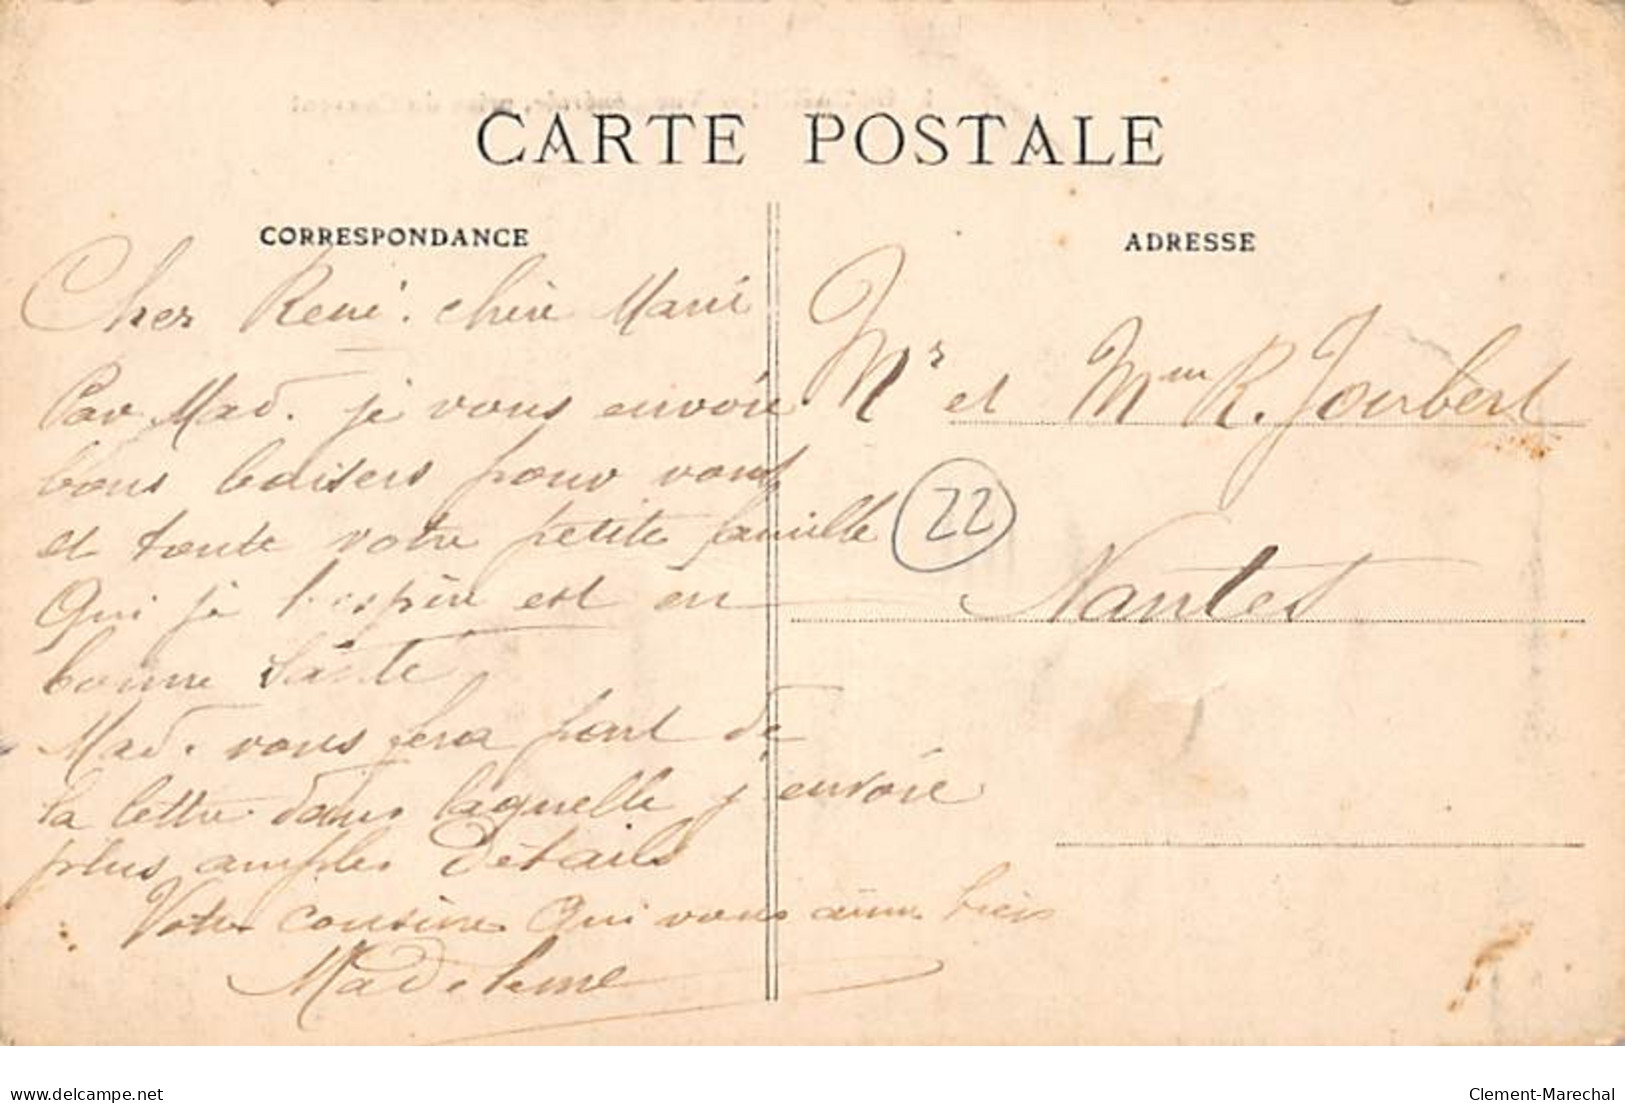 CARTE POSTALE
CORRESPONDANCE
ADRESSE
Cher René. chère Marie
Par Mad. je vous envoie
bons baisers pour vous
et toute votre petite famille
Qui je l'espère est en
bonne santé
Mad. vous fera part de
la lettre dans laquelle j'envoie
plus amples détails
Votre cousine Qui vous aime bien
Madeleine
Mr et Mme R. Joubert
22
Nantes
delcampe.net
Clement-Marechal